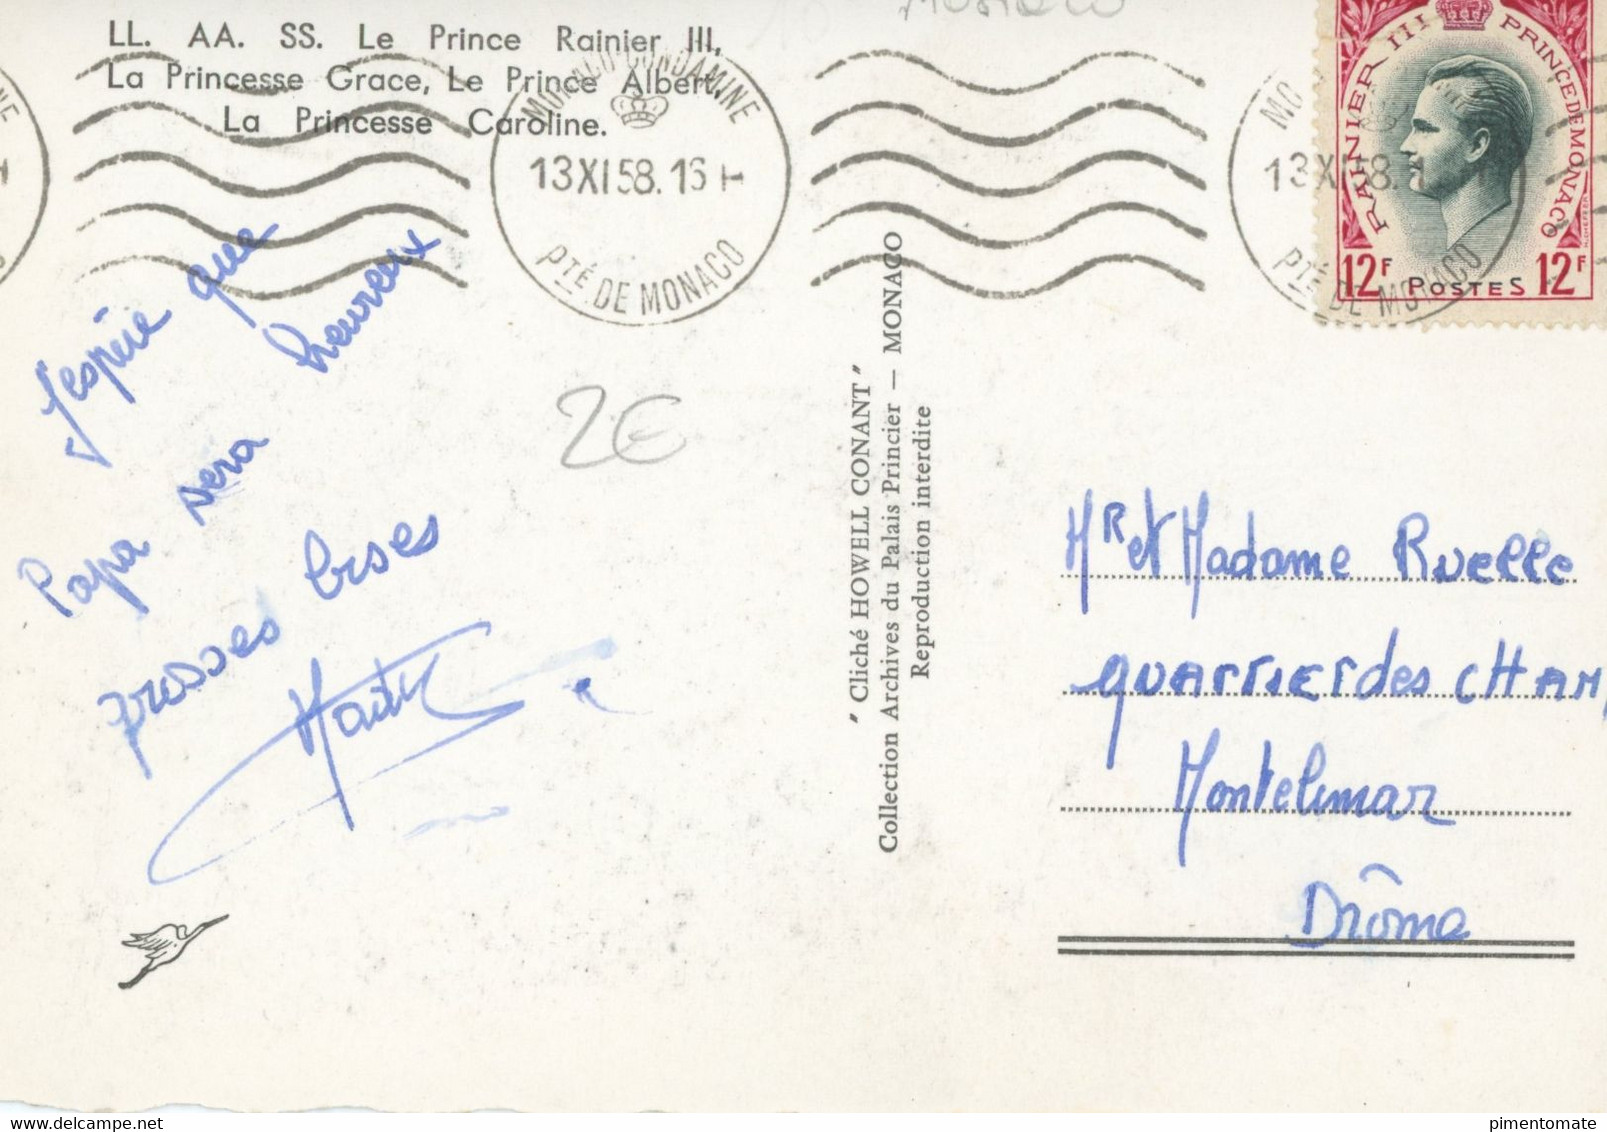 LL. AA. SS. Le Prince Rainier III,
La Princesse Grace, Le Prince Albert,
La Princesse Caroline.
MONACO-CONDAMINE
13 XI 58. 16 H
PTÉ DE MONACO
13 XI 58.
PTÉ DE MONACO
RAINIER III PRINCE DE MONACO
12F POSTES 12F
J'espère que
Papa sera heureux
grosses bises
2€
"Cliché HOWELL CONANT"
Collection Archives du Palais Princier — MONACO
Reproduction interdite
Mr et Madame Ruelle
quartier des CHAM
Montelimar
Drôme
pimentomate